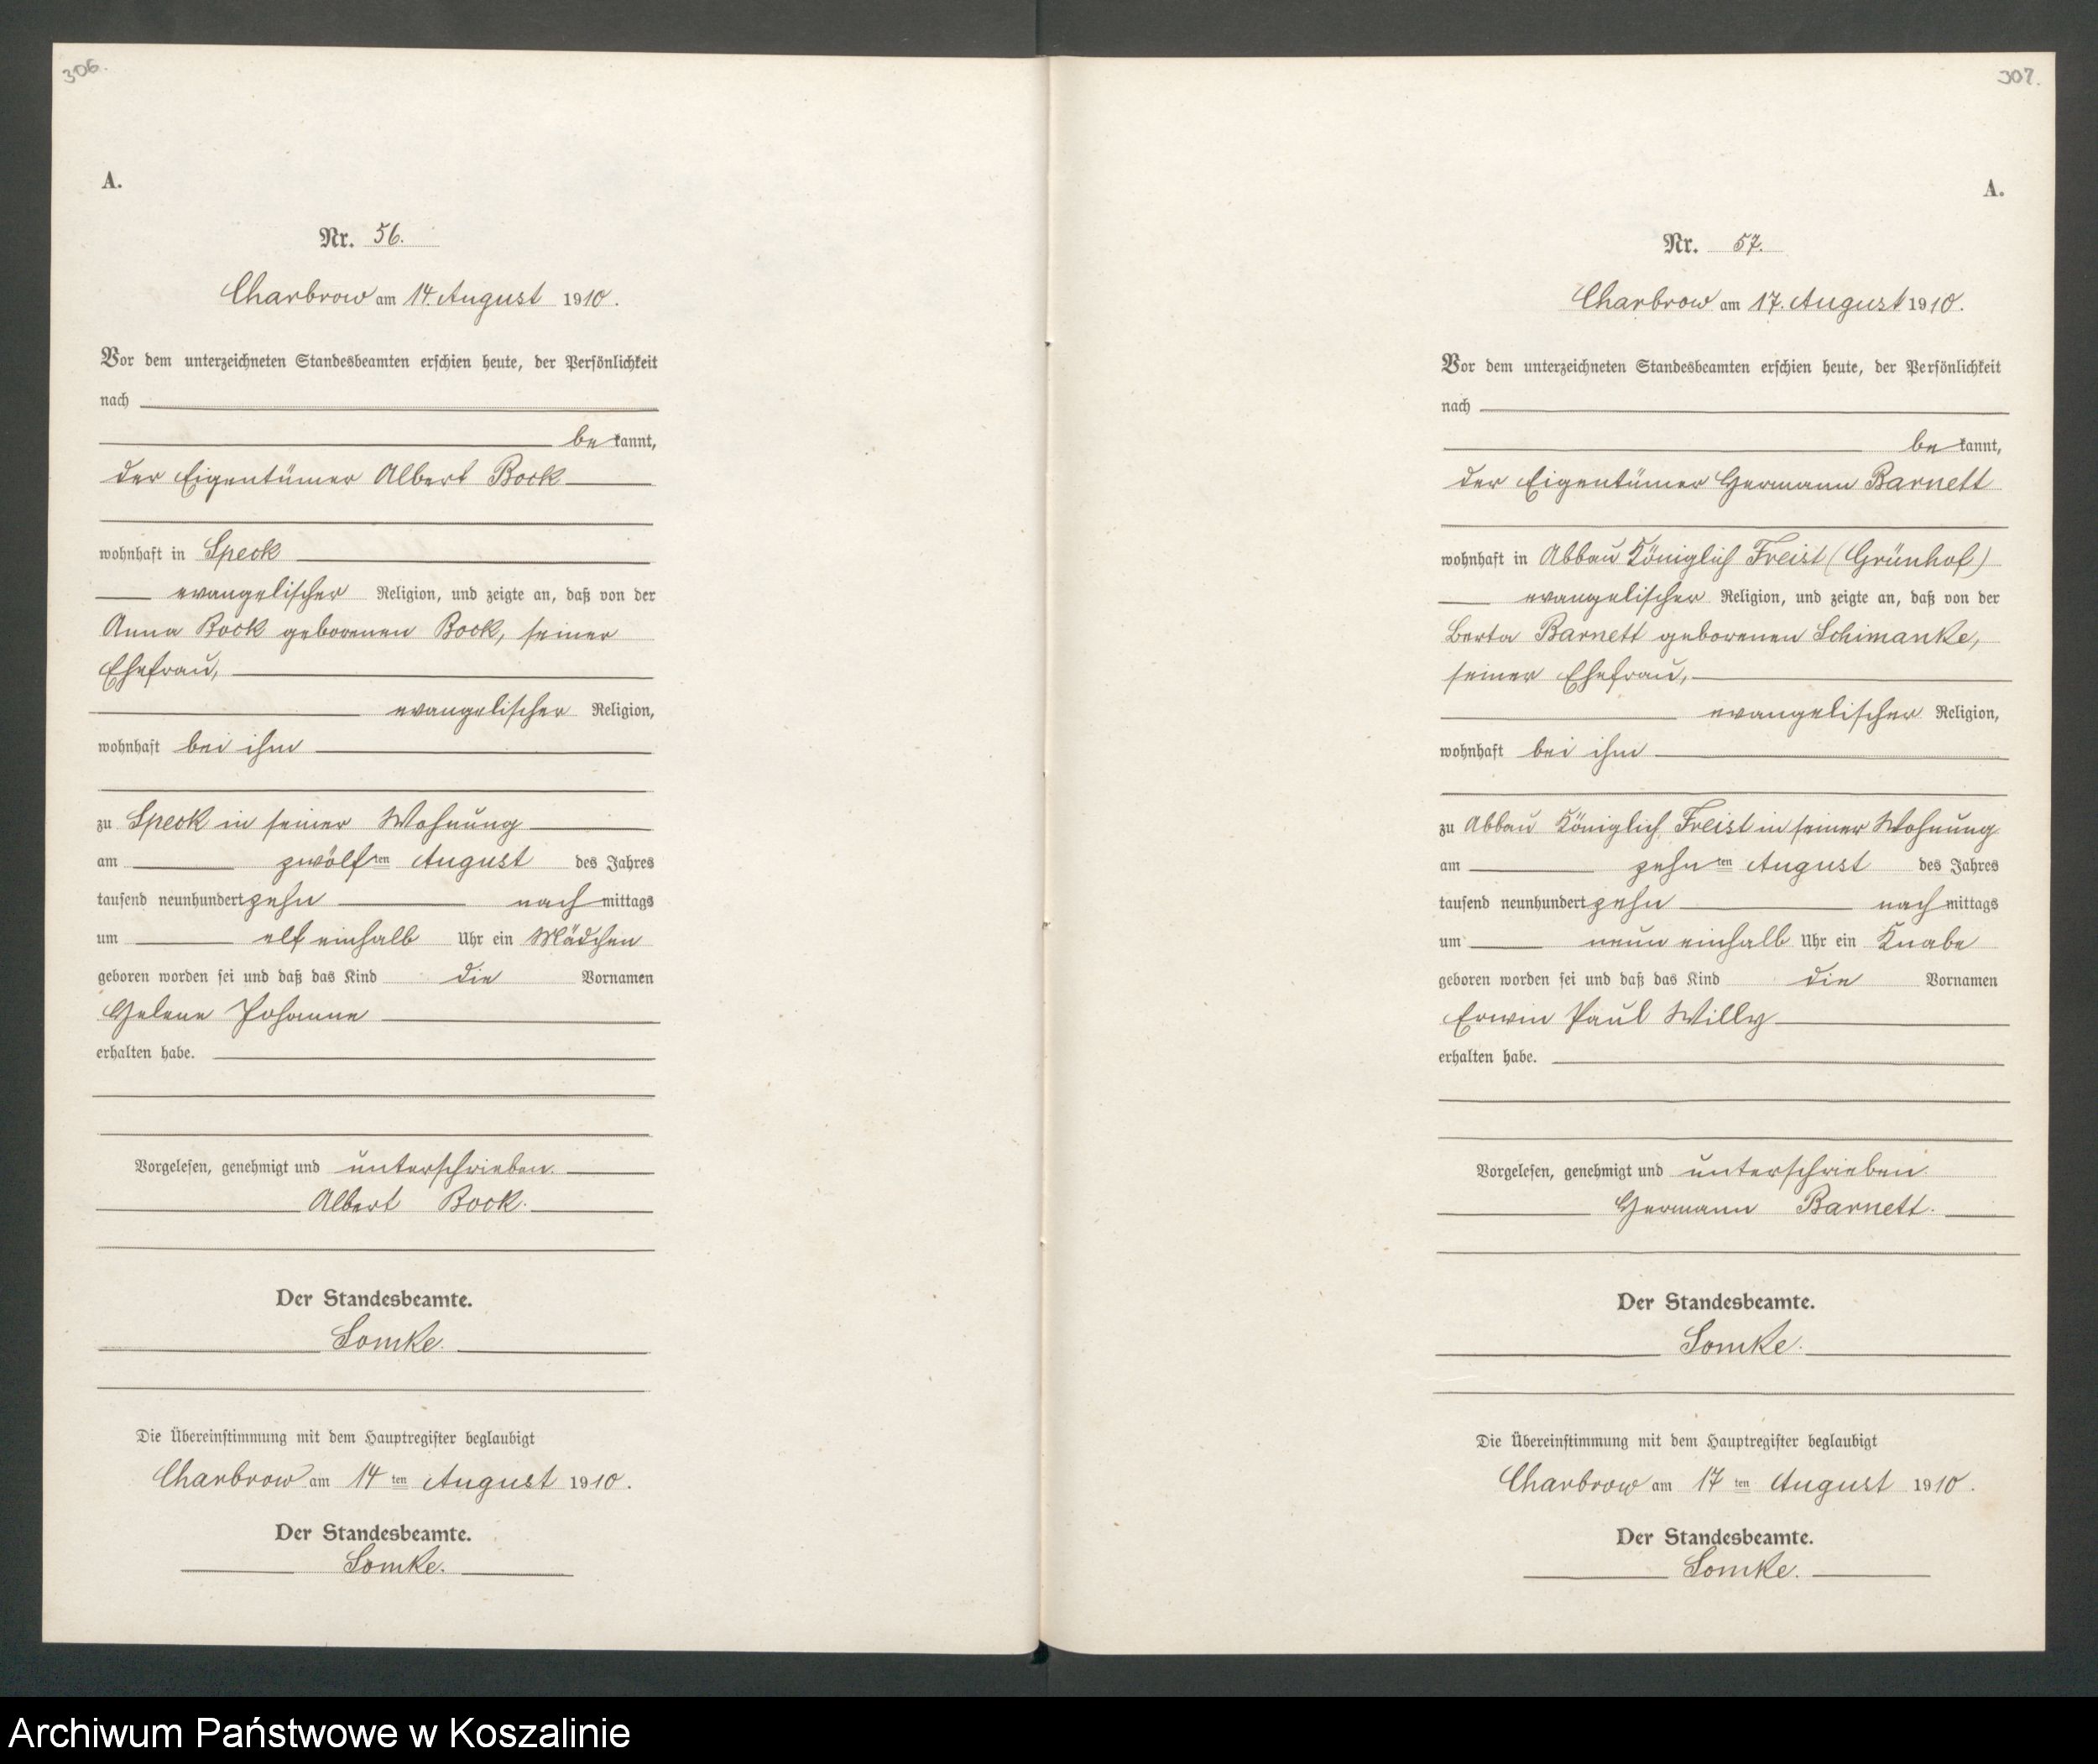 306.
A.
Nr. 56.
Charbrow am 14. August 1910.
Vor dem unterzeichneten Standesbeamten erschien heute, der Persönlichkeit
nach
be kannt,
der Eigentümer Albert Bock
wohnhaft in Speck
evangelischer Religion, und zeigte an, daß von der
Anna Bock geborenen Bock, seiner
Ehefrau,
evangelischer Religion,
wohnhaft bei ihm
zu Speck in seiner Wohnung
am zwölf ten August des Jahres
tausend neunhundert zehn nach mittags
um elf einhalb Uhr ein Mädchen
geboren worden sei und daß das Kind die Vornamen
Helene Johanne
erhalten habe.
Vorgelesen, genehmigt und unterschrieben.
Albert Bock.
Der Standesbeamte.
Lomke.
Die Übereinstimmung mit dem Hauptregister beglaubigt
Charbrow am 14 ten August 1910.
Der Standesbeamte.
Lomke.
307.
A.
Nr. 57.
Charbrow am 17. August 1910.
Vor dem unterzeichneten Standesbeamten erschien heute, der Persönlichkeit
nach
be kannt,
der Eigentümer Hermann Barnett
wohnhaft in Abbau Königlich Freist (Grünhof)
evangelischer Religion, und zeigte an, daß von der
Berta Barnett geborenen Schimanke,
seiner Ehefrau,
evangelischer Religion,
wohnhaft bei ihm
zu Abbau Königlich Freist in seiner Wohnung
am zehn ten August des Jahres
tausend neunhundert zehn nach mittags
um neun einhalb Uhr ein Knabe
geboren worden sei und daß das Kind die Vornamen
Erwin Paul Willy
erhalten habe.
Vorgelesen, genehmigt und unterschrieben
Hermann Barnett.
Der Standesbeamte.
Lomke.
Die Übereinstimmung mit dem Hauptregister beglaubigt
Charbrow am 17 ten August 1910.
Der Standesbeamte.
Lomke.
Archiwum Państwowe w Koszalinie